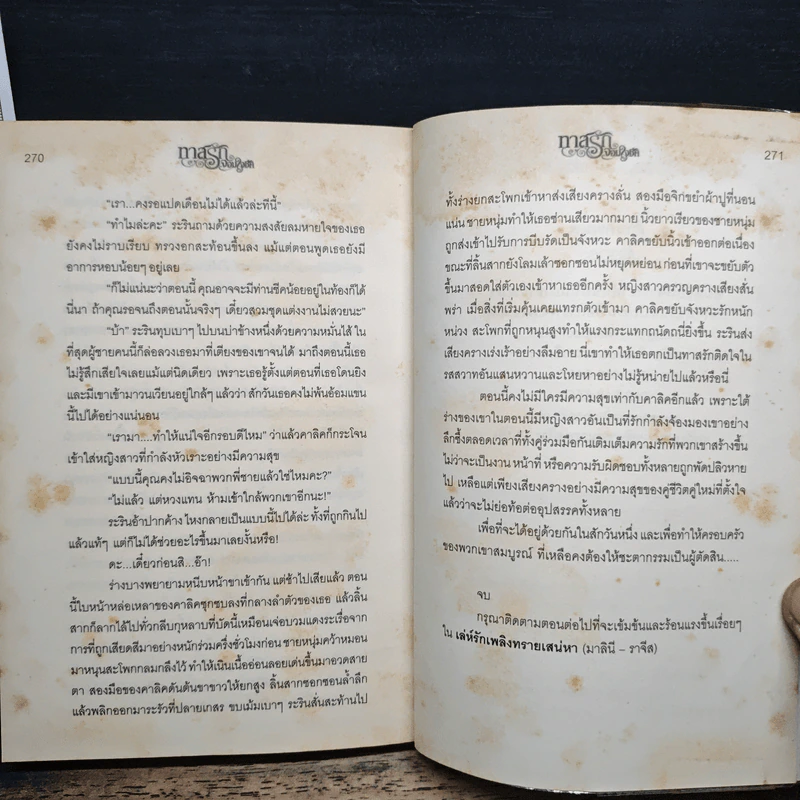 270
ทาสรัก
"เรา...คงรอแปดเดือนไม่ได้แล้วล่ะทีนี้"
"ทำไมล่ะคะ" ระรินถามด้วยความสงสัยลมหายใจของเธอ
ยังคงไม่ราบเรียบ ทรวงอกสะท้อนขึ้นลง แม้แต่ตอนพูดเธอยังมี
อาการหอบน้อยๆ อยู่เลย
"ก็ไม่แน่นะว่าตอนนี้ คุณอาจจะมีท่านชีคน้อยอยู่ในท้องก็ได้
นี่นา ถ้าคุณรอจนถึงตอนนั้นจริงๆ เดี๋ยวสวมชุดแต่งงานไม่สวยนะ"
"บ้า" ระรินทุบเบาๆ ไปบนบ่าข้างหนึ่งด้วยความหมั่นไส้ ใน
ที่สุดผู้ชายคนนี้ก็ล่อลวงเธอมาที่เตียงของเขาจนได้ มาถึงตอนนี้เธอ
ไม่รู้สึกเสียใจเลยแม้แต่นิดเดียว เพราะเธอรู้ตั้งแต่ตอนที่เธอโดนยิง
และมีเขาเข้ามาวนเวียนอยู่ใกล้ๆ แล้วว่า สักวันเธอคงไม่พ้นอ้อมแขน
นี้ไปได้อย่างแน่นอน
"เรามา....ทำให้แน่ใจอีกรอบดีไหม" ว่าแล้วคาลิคก็กระโจน
เข้าใส่หญิงสาวที่กำลังหัวเราะอย่างมีความสุข
"แบบนี้คุณคงไม่อิจฉาพวกพี่ชายแล้วใช่ไหมคะ?"
"ไม่แล้ว แต่หวงแทน ห้ามเข้าใกล้พวกเขาอีกนะ!"
ระรินอ้าปากค้าง ไหงกลายเป็นแบบนี้ไปได้ล่ะ ทั้งที่ถูกกินไป
แล้วแท้ๆ แต่ก็ไม่ได้ช่วยอะไรขึ้นมาเลยงั้นหรือ!
ดะ...เดี๋ยวก่อนสิ...อ๊า!
ร่างบางพยายามหนีบหน้าขาเข้ากัน แต่ช้าไปเสียแล้ว ตอน
นี้ใบหน้าหล่อเหลาของคาลิคซุกซบลงที่กลางลำตัวของเธอ แล้วลิ้น
สากก็ลากไล้ไปทั่วกลีบกุหลาบที่บัดนี้เหมือนเจ่อบวมแดงระเรื่อจาก
การที่ถูกเสียดสีมาอย่างหนักร่วมครึ่งชั่วโมงก่อน ชายหนุ่มคว้าหมอน
มาหนุนสะโพกกลมกลึงไว้ ทำให้เนินเนื้ออ่อนลอยเด่นขึ้นมาอวดสาย
ตา สองมือของคาลิคดันต้นขาขาวให้ยกสูง ลิ้นสากซอกซอนล้ำลึก
แล้วพลิกออกมาระรัวที่ปลายเกสร ขบเม้มเบาๆ ระรินสั่นสะท้านไป
ทาสรัก
271
ทั้งร่างยกสะโพกเข้าหาส่งเสียงครางลั่น สองมือจิกขยำผ้าปูที่นอน
แน่น ชายหนุ่มทำให้เธอซ่านเสียวมากมาย นิ้วยาวเรียวของชายหนุ่ม
ถูกส่งเข้าไปรับการบีบรัดเป็นจังหวะ คาลิคขยับนิ้วเข้าออกต่อเนื่อง
ขณะที่ลิ้นสากยังโลมเล้าซอกซอนไม่หยุดหย่อน ก่อนที่เขาจะขยับตัว
ขึ้นมาสอดใส่ตัวเองเข้าหาเธออีกครั้ง หญิงสาวครวญครางเสียงสั่น
พร่า เมื่อสิ่งที่เริ่มคุ้นเคยแทรกตัวเข้ามา คาลิคขยับจังหวะรักหนัก
หน่วง สะโพกที่ถูกหนุนสูงทำให้แรงกระแทกถนัดถนี่ยิ่งขึ้น ระรินส่ง
เสียงครางเร่งเร้าอย่างลืมอาย นี่เขาทำให้เธอตกเป็นทาสรักติดใจใน
รสสวาทอันแสนหวานและโหยหาอย่างไม่รู้หน่ายไปแล้วหรือนี่
ตอนนี้คงไม่มีใครมีความสุขเท่ากับคาลิคอีกแล้ว เพราะใต้
ร่างของเขาในตอนนี้มีหญิงสาวอันเป็นที่รักกำลังจ้องมองเขาอย่าง
ลึกซึ้งตลอดเวลาที่ทั้งคู่ร่วมมือกันเติมเต็มความรักที่พวกเขาสร้างขึ้น
ไม่ว่าจะเป็นงาน หน้าที่ หรือความรับผิดชอบทั้งหลายถูกพัดปลิวหาย
ไป เหลือแต่เพียงเสียงครางอย่างมีความสุขของคู่ชีวิตคู่ใหม่ที่ตั้งใจ
แล้วว่าจะไม่ย่อท้อต่ออุปสรรคทั้งหลาย
เพื่อที่จะได้อยู่ด้วยกันในสักวันหนึ่ง และเพื่อทำให้ครอบครัว
ของพวกเขาสมบูรณ์ ที่เหลือคงต้องให้ชะตากรรมเป็นผู้ตัดสิน.....
จบ
กรุณาติดตามตอนต่อไปที่จะเข้มข้นและร้อนแรงขึ้นเรื่อยๆ
ใน เล่ห์รักเพลิงทรายเสน่หา (มาลินี – ราจีส)